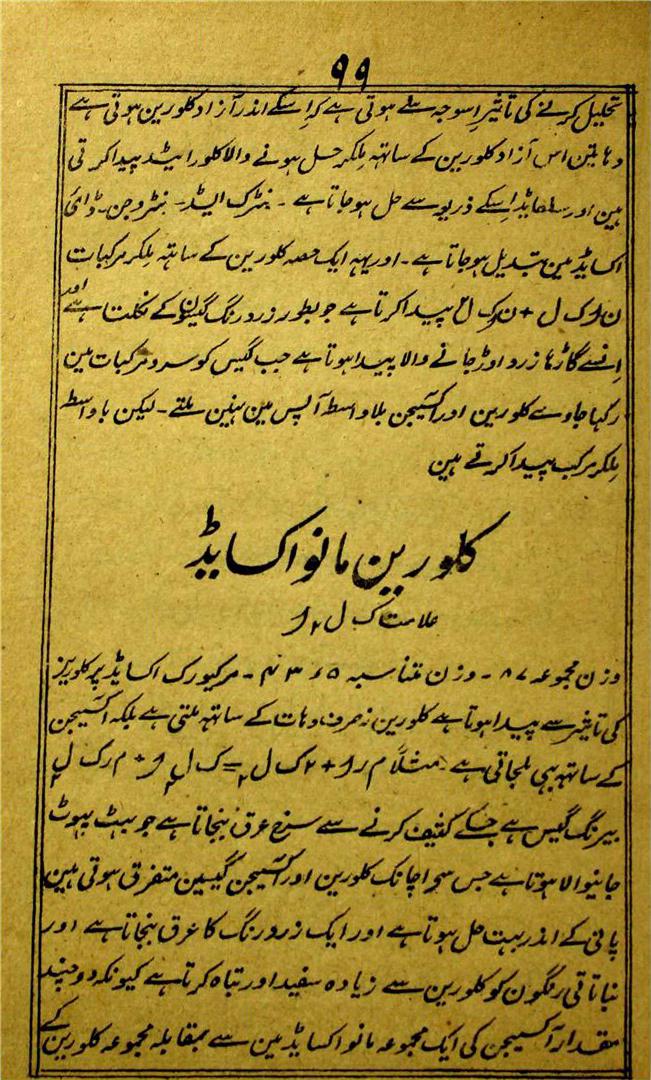 ۹۹
تحلیل کرنے کی تاثیر اسوجہ سے ہوتی ہے کہ اسکے اندر آزاد کلورین ہوتی ہے
دہاتین اس آزاد کلورین کے ساتہہ ملکر حل ہونے والا کلورائیڈ پیدا کرتی
ہین اور سلفایڈ اسکے ذریعہ سے حل ہوجاتا ہے ۔ نٹرک ایسڈ ۔ نٹروجن ۔ ڈائی
اکسایڈ مین تبدیل ہوجاتا ہے ۔ اور یہہ ایک حصہ کلورین کے ساتہہ ملکر مرکبات
ک ل + ک ل پیدا کرتا ہے جو بطور زرد رنگ گیسون کے نکلتا ہے اور
انسے گاڑہا زرد اوڑ جانے والا پیدا ہوتا ہے جب گیس کو سرد مرکبات مین
رکہا جاوے کلورین اور اکسیجن بلاواسطہ آپس مین نہین ملتے ۔ لیکن باواسطہ
ملکر مرکب پیدا کرتے ہین
کلورین مانواکسایڈ
علامت ک ل ۲ ا
وزن مجموعہ ۸۷ ۔ وزن متناسبہ ۴۳٫۵ ۔ مرکیورک اکسایڈ پر کلورین
کی تاثیر سے پیدا ہوتا ہے کلورین نہ صرف دہات کے ساتہہ ملتی ہے بلکہ اکسیجن
کے ساتہہ بہی ملجاتی ہے مثلاً م ر ا + ۲ ک ل ۲ = ک ل ۲ ا + م ر ک ل ۲
بیرنگ گیس ہے جسکے کثیف کرنے سے سرخ عرق بنجاتا ہے جو بہٹ پہوٹ
جانیوالا ہوتا ہے جس سے اچانک کلورین اور اکسیجن گیسین متفرق ہوتی ہین
پانی کے اندر بہت حل ہوتا ہے اور ایک زرد رنگ کا عرق بنجاتا ہے اور
نباتاتی رنگون کو کلورین سے زیادہ سفید اور تباہ کرتا ہے کیونکہ دوچند
مقدار آکسیجن کی ایک مجموعہ مانواکسایڈ مین سے بمقابلہ مجموعہ کلورین کے